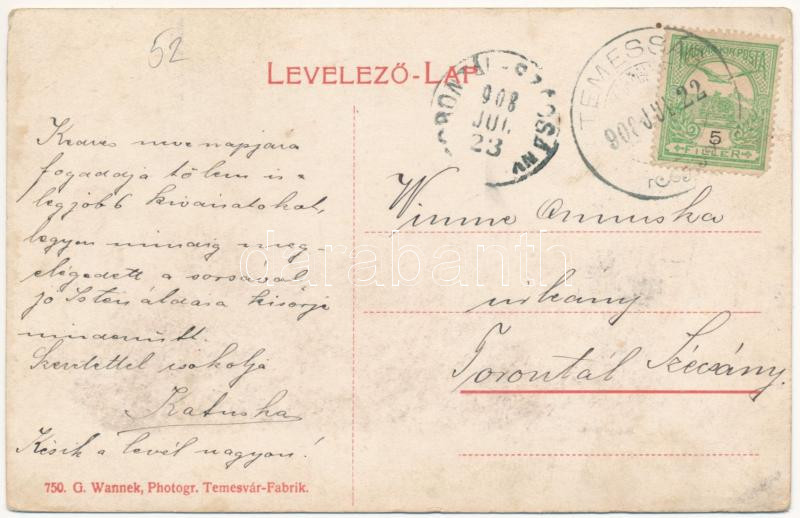 52
LEVELEZŐ-LAP
TEMESSÁ
908 JUL 22
TORONTÁL-SZÉCSÁNY
908
JUL
23
MAGYAR KIR. POSTA
5
FILLÉR
Kedves nevenapjara
fogadja tőlem is a
legjobb kivánatokat,
legyen mindig meg-
elégedett a sorsával
jó Isten áldása kisérje
mindenütt.
Szeretettel csókolja
Katuska
Késik a levél nagyon!
Winme Annuska
urleany
Torontál Szécsány.
darabanth
750. G. Wannek, Photogr. Temesvár-Fabrik.